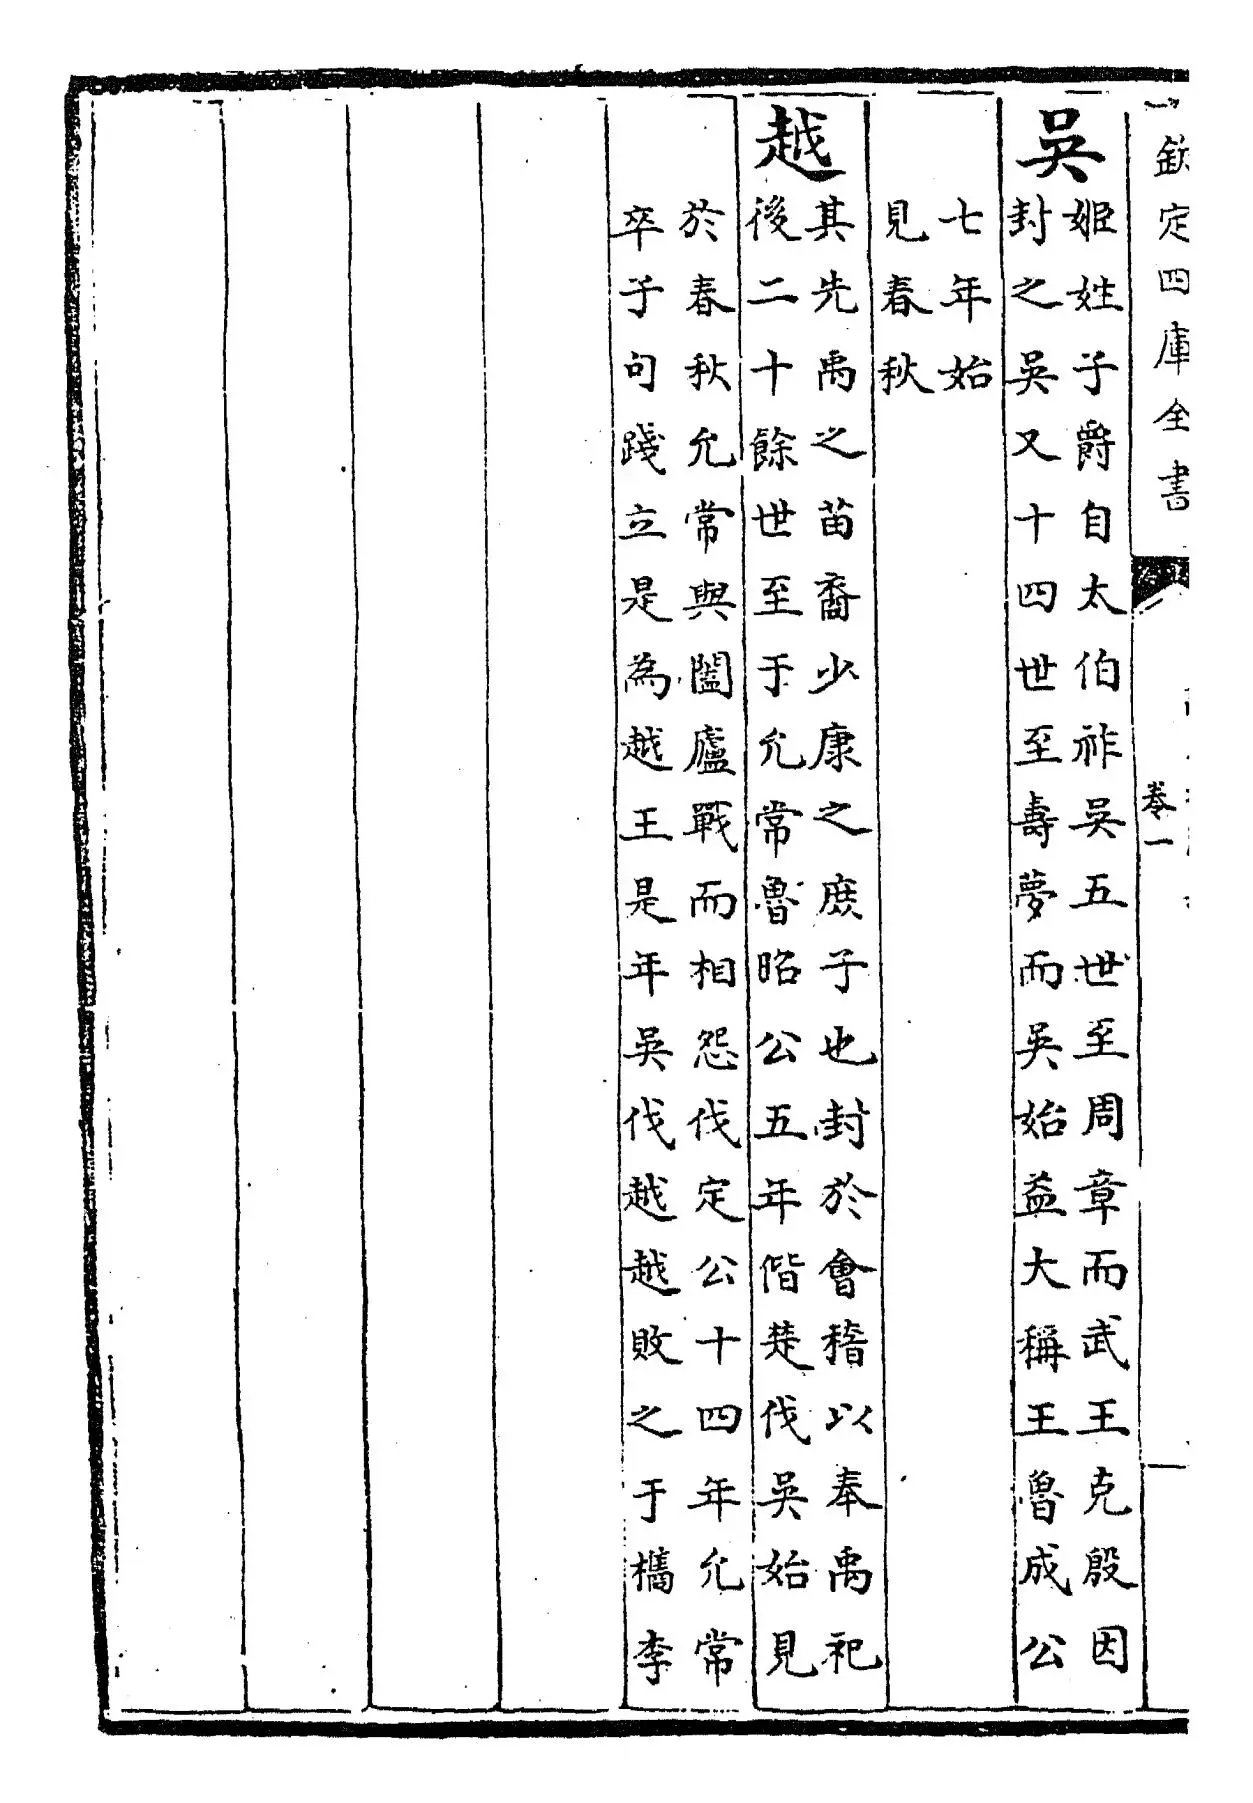 欽定四庫全書
卷一
吳
姬姓子爵自太伯祚吳五世至周章而武王克殷因
封之吳又十四世至壽夢而吳始益大稱王魯成公
七年始
見春秋
越
其先禹之苗裔少康之庶子也封於會稽以奉禹祀
後二十餘世至于允常魯昭公五年偕楚伐吳始見
於春秋允常與闔廬戰而相怨伐定公十四年允常
卒子句踐立是為越王是年吳伐越越敗之于檇李